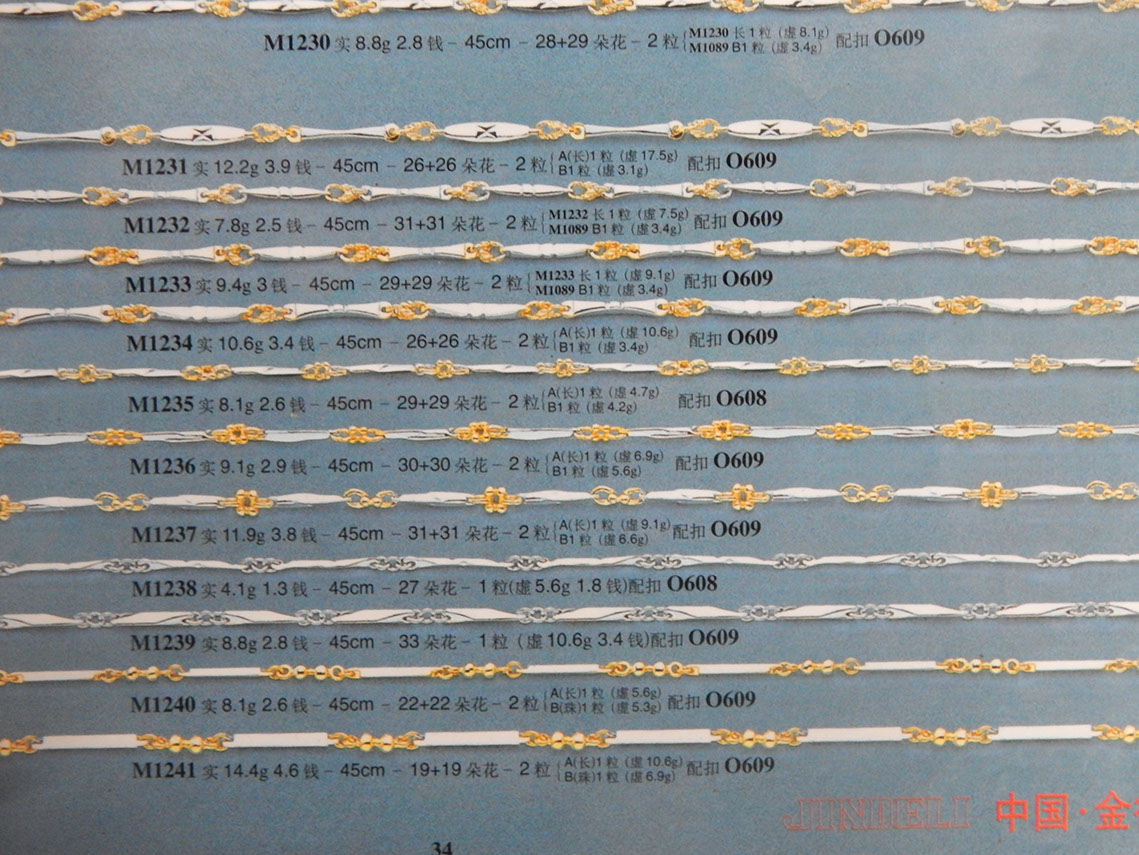 M1230 实 8.8g 2.8 钱 – 45cm – 28+29 朵花 – 2 粒{M1230 长 1 粒 (虚 8.1g) 配扣 O609
M1089 B1 粒 (虚 3.4g)
M1231 实 12.2g 3.9 钱 – 45cm – 26+26 朵花 – 2 粒{A(长)1 粒 (虚 17.5g) 配扣 O609
B1 粒 (虚 3.1g)
M1232 实 7.8g 2.5 钱 – 45cm – 31+31 朵花 – 2 粒{M1232 长 1 粒 (虚 7.5g) 配扣 O609
M1089 B1 粒 (虚 3.4g)
M1233 实 9.4g 3 钱 – 45cm – 29+29 朵花 – 2 粒{M1233 长 1 粒 (虚 9.1g) 配扣 O609
M1089 B1 粒 (虚 3.4g)
M1234 实 10.6g 3.4 钱 – 45cm – 26+26 朵花 – 2 粒{A(长)1 粒 (虚 10.6g) 配扣 O609
B1 粒 (虚 3.4g)
M1235 实 8.1g 2.6 钱 – 45cm – 29+29 朵花 – 2 粒{A(长)1 粒 (虚 4.7g) 配扣 O608
B1 粒 (虚 4.2g)
M1236 实 9.1g 2.9 钱 – 45cm – 30+30 朵花 – 2 粒{A(长)1 粒 (虚 6.9g) 配扣 O609
B1 粒 (虚 5.6g)
M1237 实 11.9g 3.8 钱 – 45cm – 31+31 朵花 – 2 粒{A(长)1 粒 (虚 9.1g) 配扣 O609
B1 粒 (虚 6.6g)
M1238 实 4.1g 1.3 钱 – 45cm – 27 朵花 – 1 粒(虚 5.6g 1.8 钱)配扣 O608
M1239 实 8.8g 2.8 钱 – 45cm – 33 朵花 – 1 粒 (虚 10.6g 3.4 钱)配扣 O609
M1240 实 8.1g 2.6 钱 – 45cm – 22+22 朵花 – 2 粒{A(长)1 粒 (虚 5.6g) 配扣 O609
B(珠)1 粒 (虚 5.3g)
M1241 实 14.4g 4.6 钱 – 45cm – 19+19 朵花 – 2 粒{A(长)1 粒 (虚 10.6g) 配扣 O609
B(珠)1 粒 (虚 6.9g)
JINDELI 中国·金
34